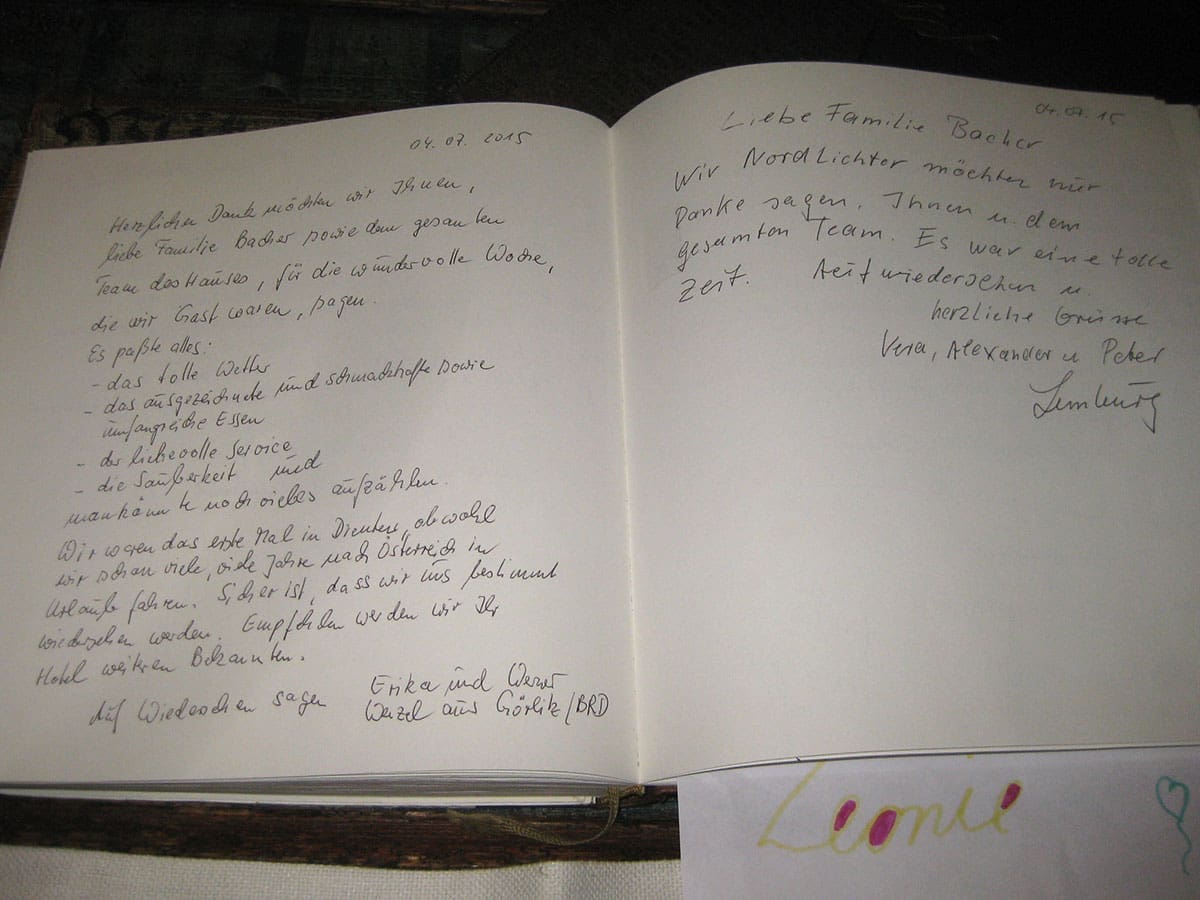 04. 07. 2015
Herzlichen Dank möchten wir Ihnen,
liebe Familie Bacher sowie dem gesamten
Team des Hauses, für die wundervolle Woche,
die wir Gast waren, sagen.
Es paßte alles:
- das tolle Wetter
- das ausgezeichnete und schmackhafte sowie
umfangreiche Essen
- der liebevolle Service
- die Sauberkeit und
man könnte noch vieles aufzählen.
Wir waren das erste Mal in Dienten, obwohl
wir schon viele, viele Jahre nach Österreich in
Urlaub fahren. Sicher ist, dass wir uns bestimmt
wiedersehen werden. Empfehlen werden wir Ihr
Hotel weiteren Bekannten.
Auf Wiedersehen sagen Erika und Werner
aus Görlitz/BRD
04.07.15
Liebe Familie Bacher
Wir NordLichter möchten nur
Danke sagen. Ihnen u. dem
gesamten Team. Es war eine tolle
Zeit. Auf wiedersehen u.
herzliche Grüsse
Vera, Alexander u Peter
Leonie